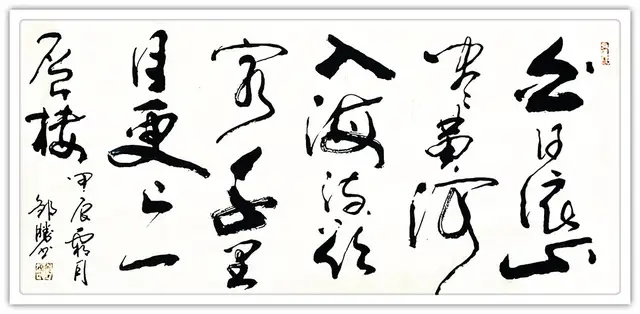 白日依山
尽黄河
入海流欲
穷千里
目更上一
层楼
甲辰霜月
邹胜书